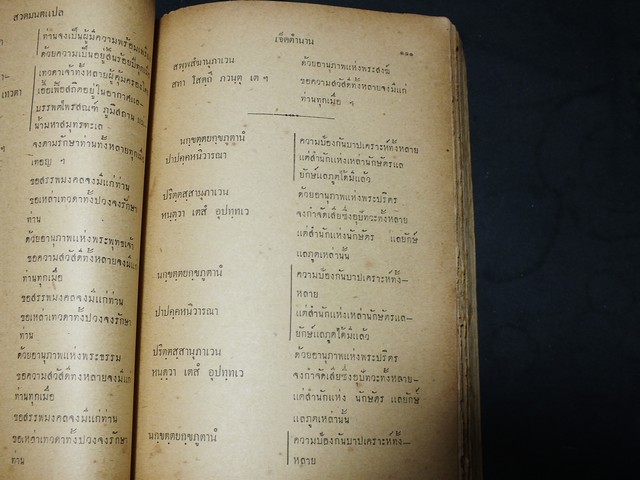 สวดมนตแปล
ท่านจงเป็นผู้มีความพร้อมเพรียง
ด้วยความเป็นอยู่สิ้นร้อยปีทุกเมื่อ
เทวดาเจ้าทั้งหลายผู้คุ้มครอง
เอื้อเพื่อสถิตอยู่ในอากาศแล-
เทวดา
บรรพตไพรสณฑ์ ภูมิสถาน
น้ำมหาสมุทรทะเล
จงตามรักษาท่านทั้งหลายทุกเมื่อ
เทอญ ฯ
ขอสรรพมงคลจงมีแก่ท่าน
ขอเหล่าเทวดาทั้งปวงจงรักษา
ท่าน
ด้วยอานุภาพแห่งพระพุทธเจ้า
ขอความสวัสดีทั้งหลายจงมีแก่
ท่านทุกเมื่อ
ขอสรรพมงคลจงมีแก่ท่าน
ขอเหล่าเทวดาทั้งปวงจงรักษา
ท่าน
ด้วยอานุภาพแห่งพระธรรม
ขอความสวัสดีทั้งหลายจงมีแก่
ท่านทุกเมื่อ
ขอสรรพมงคลจงมีแก่ท่าน
ขอเหล่าเทวดาทั้งปวงจงรักษา
ท่าน
เจ็ดตำนาน
๑๑๑
สพฺพสํฆานุภาเวน
ด้วยอานุภาพแห่งพระสงฆ์
สทา โสตฺถี ภวนฺตุ เต ฯ
ขอความสวัสดีทั้งหลายจงมีแก่
ท่านทุกเมื่อ ฯ
นกฺขตฺตยกฺขภูตานํ
ความป้องกันบาปเคราะห์ทั้งหลาย
ปาปคฺคหนิวารณา
แต่สำนักแห่งเหล่านักษัตรแล
ยักษ์แลภูตได้มีแล้ว
ปริตฺตสฺสานุภาเวน
ด้วยอานุภาพแห่งพระปริตร
หนฺตฺวา เตสํ อุปทฺทเว
จงกำจัดเสียซึ่งอุบัทวะทั้งหลาย
แต่สำนักแห่งนักษัตร แลยักษ์
แลภูตเหล่านั้น
นกฺขตฺตยกฺขภูตานํ
ความป้องกันบาปเคราะห์ทั้ง-
หลาย
ปาปคฺคหนิวารณา
แต่สำนักแห่งเหล่านักษัตรแล-
ยักษ์แลภูตได้มีแล้ว
ปริตฺตสฺสานุภาเวน
ด้วยอานุภาพแห่งพระปริตร
หนฺตฺวา เตสํ อุปทฺทเว
จงกำจัดเสียซึ่งอุบัทวะทั้งหลาย-
แต่สำนักแห่ง นักษัตร แลยักษ์
แลภูตเหล่านั้น
นกฺขตฺตยกฺขภูตานํ
ความป้องกันบาปเคราะห์ทั้ง-
หลาย